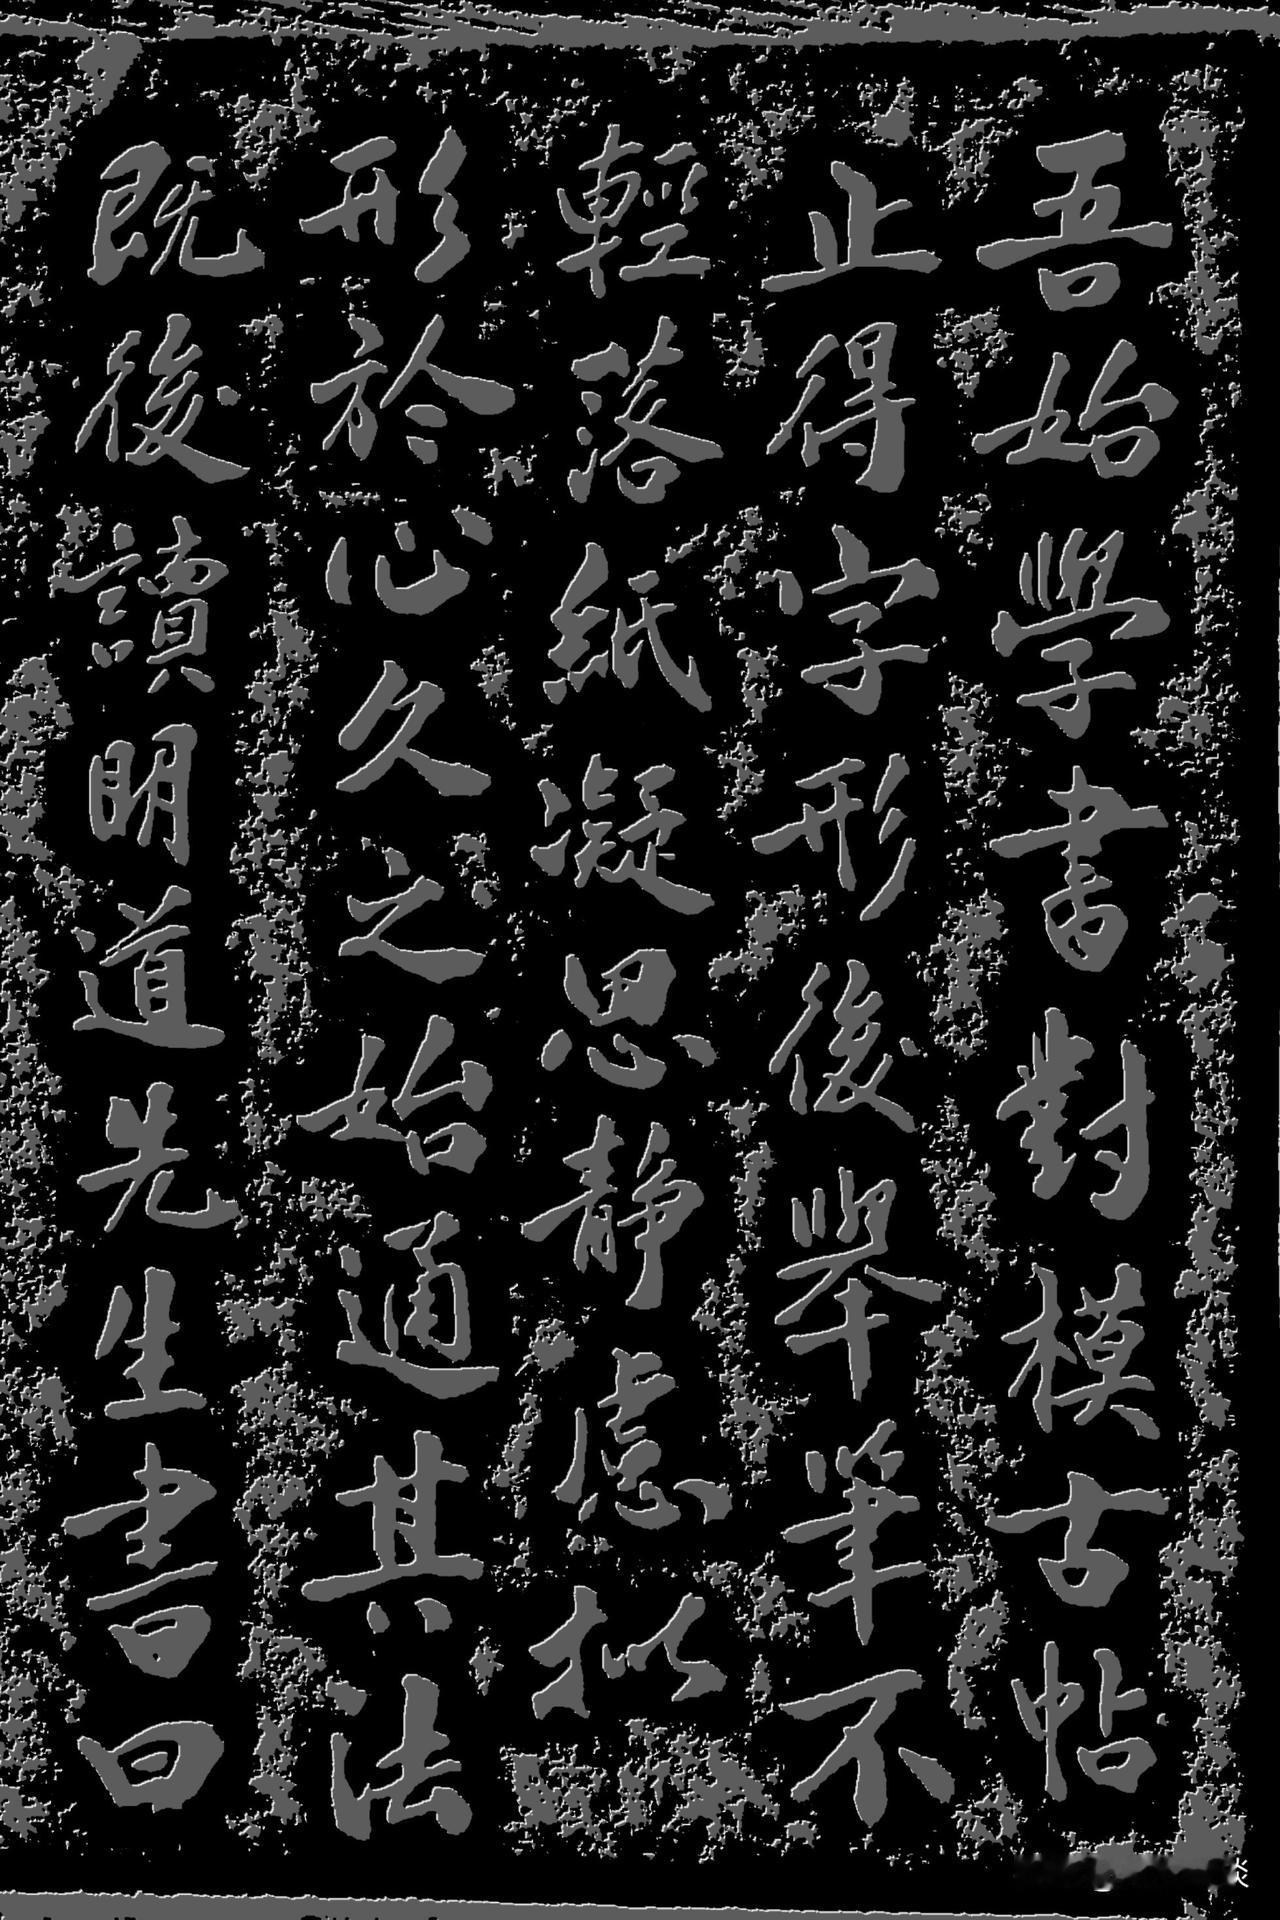 吾始學書對模古帖
止得字形後舉筆不
輕落紙凝思靜慮拟
形於心久之始通其法
既後讀明道先生書曰